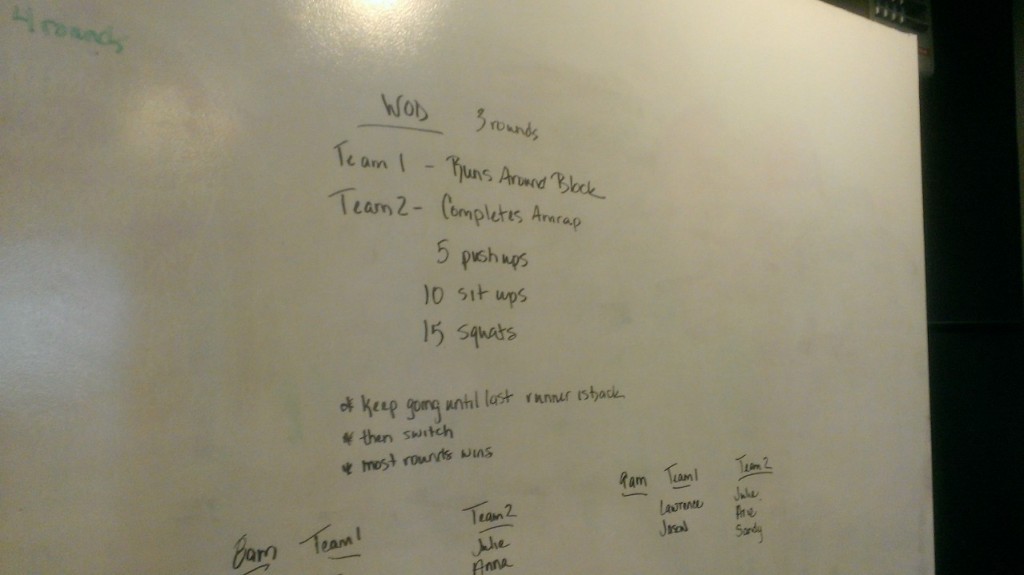 4 rounds
WOD 3 rounds
Team 1 - Runs Around Block
Team 2 - Completes Amrap
5 pushups
10 sit ups
15 squats
* Keep going until last runner is back
* then switch
* most rounds wins
9am Team 1 Team 2
Lawrence Julie
Jason
Sandy
8am Team 1 Team 2
Julie
Anna